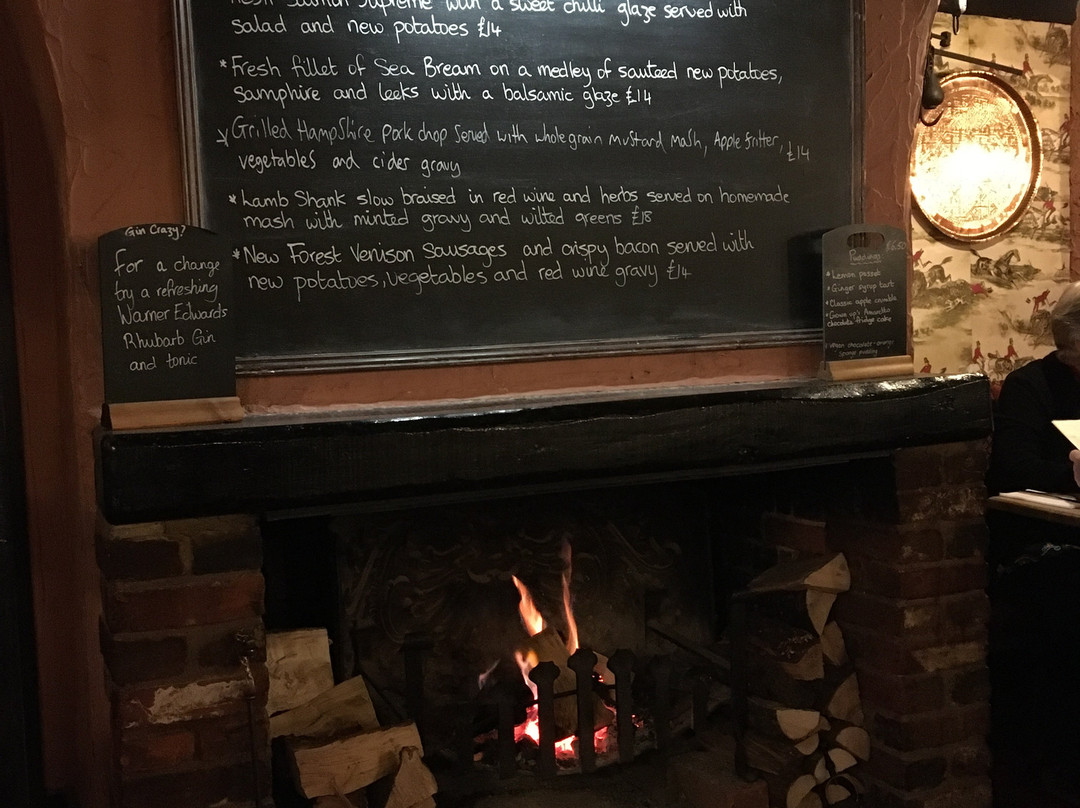 Fresh Salmon Supreme with a sweet chilli glaze served with
salad and new potatoes £14
*Fresh fillet of Sea Bream on a medley of sauteed new potatoes,
samphire and leeks with a balsamic glaze £14
*Grilled Hampshire pork chop served with wholegrain mustard mash, Apple fritter, £14
vegetables and cider gravy
*Lamb Shank slow braised in red wine and herbs served on homemade
mash with minted gravy and wilted greens £18
*New Forest Venison Sausages and crispy bacon served with
new potatoes, vegetables and red wine gravy £14
Gin Crazy?
for a change
try a refreshing
Warner Edwards
Rhubarb Gin
and tonic
£6.50
Puddings
*Lemon posset
*Ginger syrup tart
*Classic apple crumble
*Grown up's Amaretto
chocolate fridge cake
*Warm chocolate-orange
sponge pudding